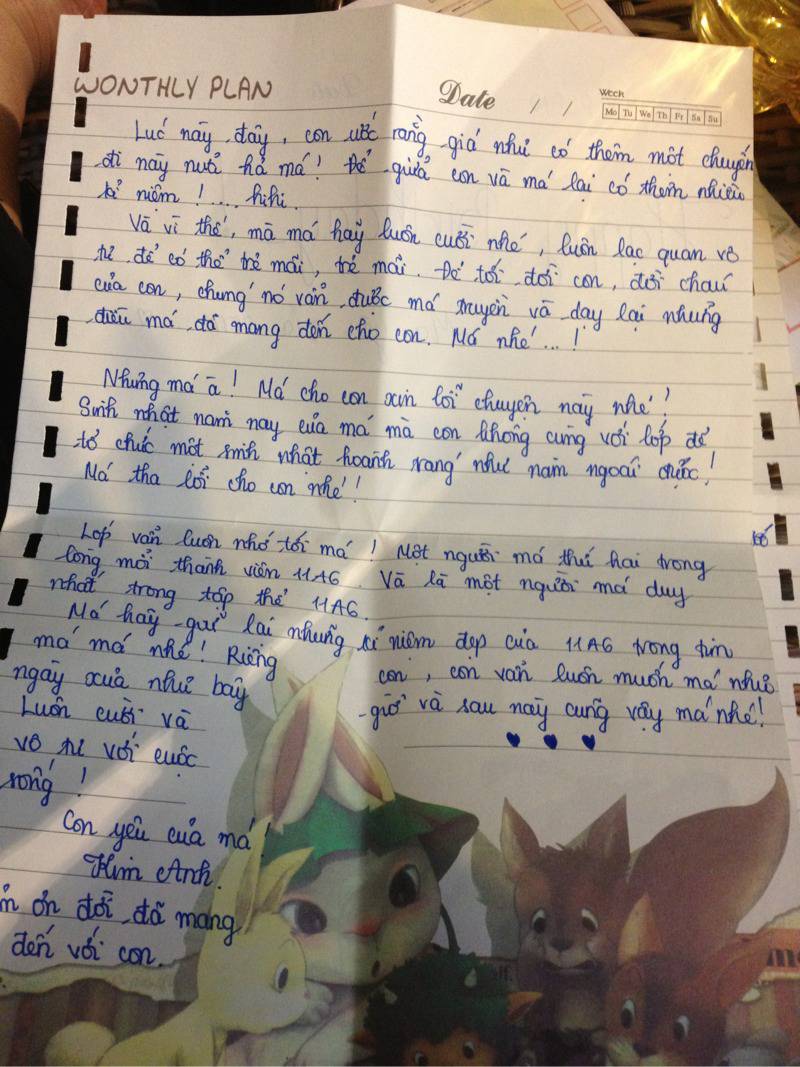 WONTHLY PLAN
Date / /
Week
Mo Tu We Th Fr Sa Su
Lúc này đây, con ước rằng giá như có thêm một chuyến
đi này nữa há má! Để giữa con và má lại có thêm nhiều
kỉ niệm!.... hihi.
Và vì thế, mà má hãy luôn cười nhé, luôn lạc quan vô
tư để có thể trẻ mãi, trẻ mãi. Để tới đời con, đời cháu
của con, chúng nó vẫn được má truyền và dạy lại những
điều má đã mang đến cho con. Má nhé...!
Nhưng má à! Má cho con xin lỗi chuyện này nhé!
Sinh nhật năm nay của má mà con không cùng với lớp để
tổ chức một sinh nhật hoành tráng như năm ngoái được!
Má tha lỗi cho con nhé!
Lớp vẫn luôn nhớ tới má! Một người má thứ hai trong
lòng mỗi thành viên 11A6. Và là một người má duy
nhất trong tập thể 11A6.
Má hãy giữ lại những kỉ niệm đẹp của 11A6 trong tim
má má nhé! Riêng con, con vẫn luôn muốn má như
ngày xưa như bây giờ và sau này cũng vậy má nhé!
Luôn cười và
vô tư với cuộc
sống!
Con yêu của má!
Kim Anh.
ơn đời đã mang
đến với con.